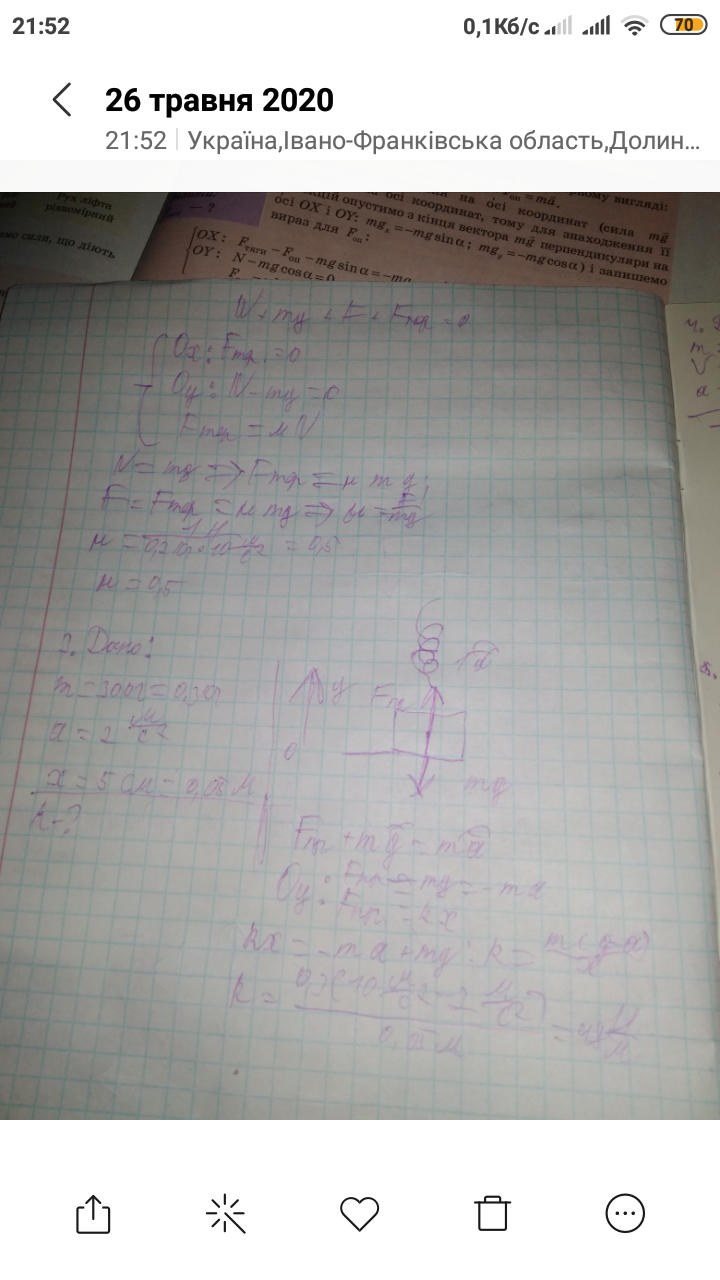 21:52
0,1Кб/с
70
26 травня 2020
21:52 Україна,Івано-Франківська область,Долин...
Рух ліфта
рівномірний
сили, що діють
— ?
вигляді:
осі координат (сила mg
опустимо з кінця вектора mg перпендикуляри на
осі OX і OY: mgₓ = −mg sin α; mgᵧ = −mg cos α) і запишемо
вираз для Fоп:
OX: Fтяги − Fоп − mg sin α = −ma
OY: N − mg cos α = 0
N + mg + F + Fтр = 0
Ox: Fтр. = 0
Oy: N − mg = 0
Fтр = μN
N = mg ⇒ Fтр = μ mg;
F = Fтр = μ mg ⇒ μ = F/mg
= 0,5
μ = 0,5
2. Дано:
m = 300г = 0,3кг
a = 2 м/с²
x = 5 см = 0,05 м
k − ?
y
a
Fпр
0
mg
Fпр + mg = ma
Oy: Fпр − mg = −ma
Fпр = kx
kx = −ma + mg: k = m(g−a)/x
k = 0,3(10 м/с² − 2 м/с²)/0,05 м = 48 Н/м